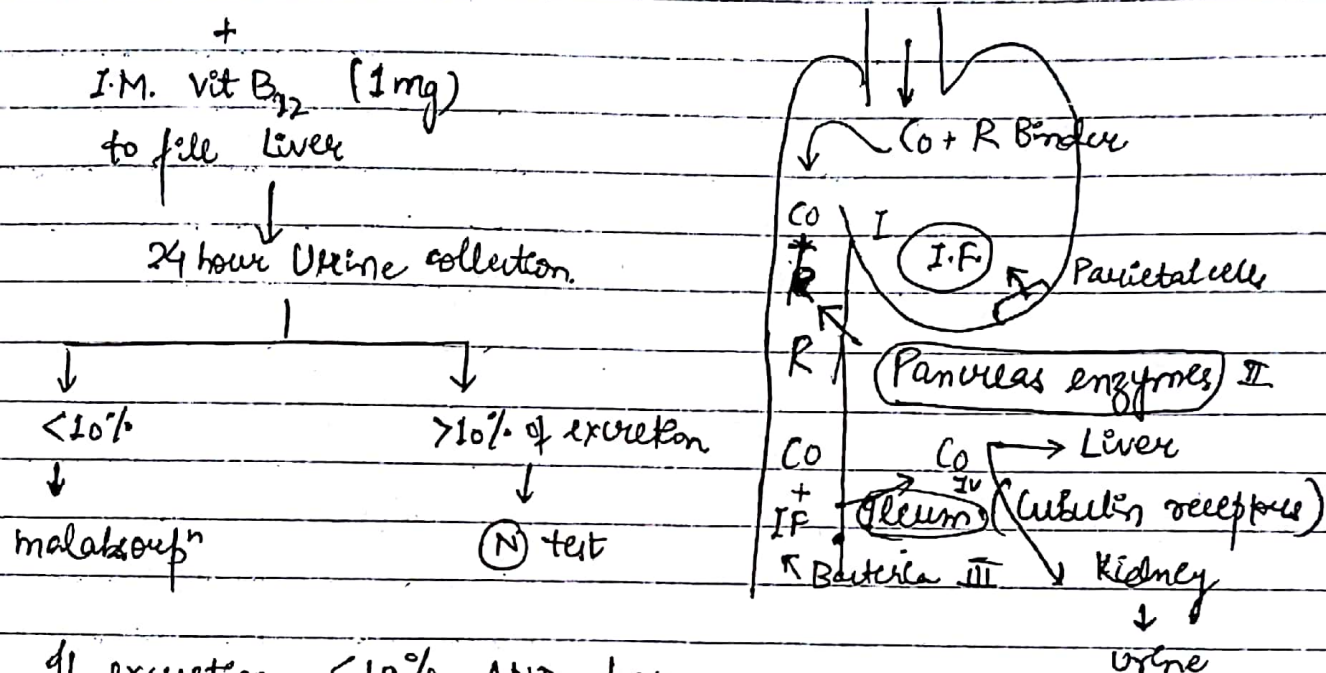 +
I.M. Vit B12 (1mg)
to fill Liver
24 hour Urine collection.
<10%
>10% of excretion
malabsorpⁿ
(N) test
Co + R Binder
Co
+
R
I
I.F
Parietal cells
R
Pancreas enzymes II
Co
+
IF
Co
IV
Liver
Ileum (Cubulin receptors)
Bacteria III
Kidney
urine
If excretion <10%